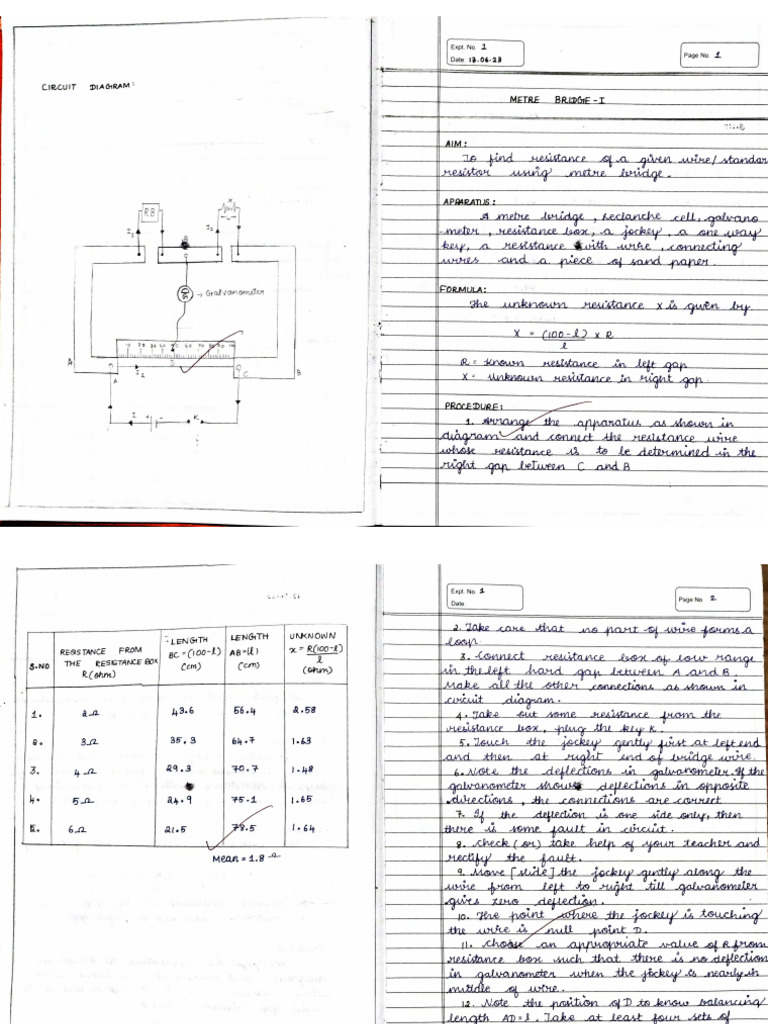 CIRCUIT DIAGRAM:
R.B
X
I1
I3
B
G
→ Galvanometer
10 20 30 40 50 60 70 80 90 100
D
A
A
I2
C
B
I
K
Expt. No. 1
Date 13.06.23
Page No. 1
METRE BRIDGE - I
AIM:
To find resistance of a given wire/standar
resistor using metre bridge.
APPARATUS:
A metre bridge, leclanche cell, galvano
meter, resistance box, a jockey, a one way
key, a resistance with wire, connecting
wires and a piece of sand paper.
FORMULA:
The unknown resistance X is given by
X = (100-l) x R
l
R = known resistance in left gap
X = unknown resistance in right gap.
PROCEDURE:
1. Arrange the apparatus as shown in
diagram and connect the resistance wire
whose resistance is to be determined in the
right gap between C and B
S.NO
RESISTANCE FROM THE RESISTANCE BOX R(ohm)
LENGTH BC = (100-l) (cm)
LENGTH AB = (l) (cm)
UNKNOWN x = R(100-l) / l (ohm)
1. 2Ω 43.6 56.4 2.58
2. 3Ω 35.3 64.7 1.63
3. 4Ω 29.3 70.7 1.48
4. 5Ω 24.9 75.1 1.65
5. 6Ω 21.5 78.5 1.64
Mean = 1.8 Ω
Expt. No. 1
Date
Page No. 2
2. Take care that no part of wire forms a
loop.
3. Connect resistance box of low range
in the left hard gap between A and B
Make all the other connections as shown in
circuit diagram.
4. Take out some resistance from the
resistance box, plug the key K.
5. Touch the jockey gently first at left end
and then at right end of bridge wire.
6. Note the deflections in galvanometer. If the
galvanometer shows deflections in opposite
directions, the connections are correct
7. If the deflection is one side only, then
there is some fault in circuit.
8. Check (or) take help of your teacher and
rectify the fault.
9. Move [slide] the jockey gently along the
wire from left to right till galvanometer
givrs zero deflection.
10. The point where the jockey is touching
the wire is null point D.
11. choose an appropriate value of R from
resistance box such that there is no deflection
in galvanometer when the jockey is nearly in
middle of wire.
12. Note the position of D to know balancing
length AD = l. Take at least four sets of